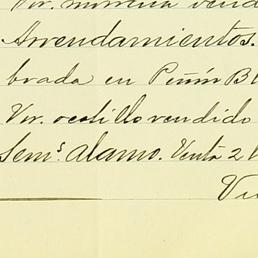 Ver. morena vend
Arrendamientos.
brada en Peñón Bl
Ver. ocotillo vendido
Sem.s Alamo. Venta 2
V